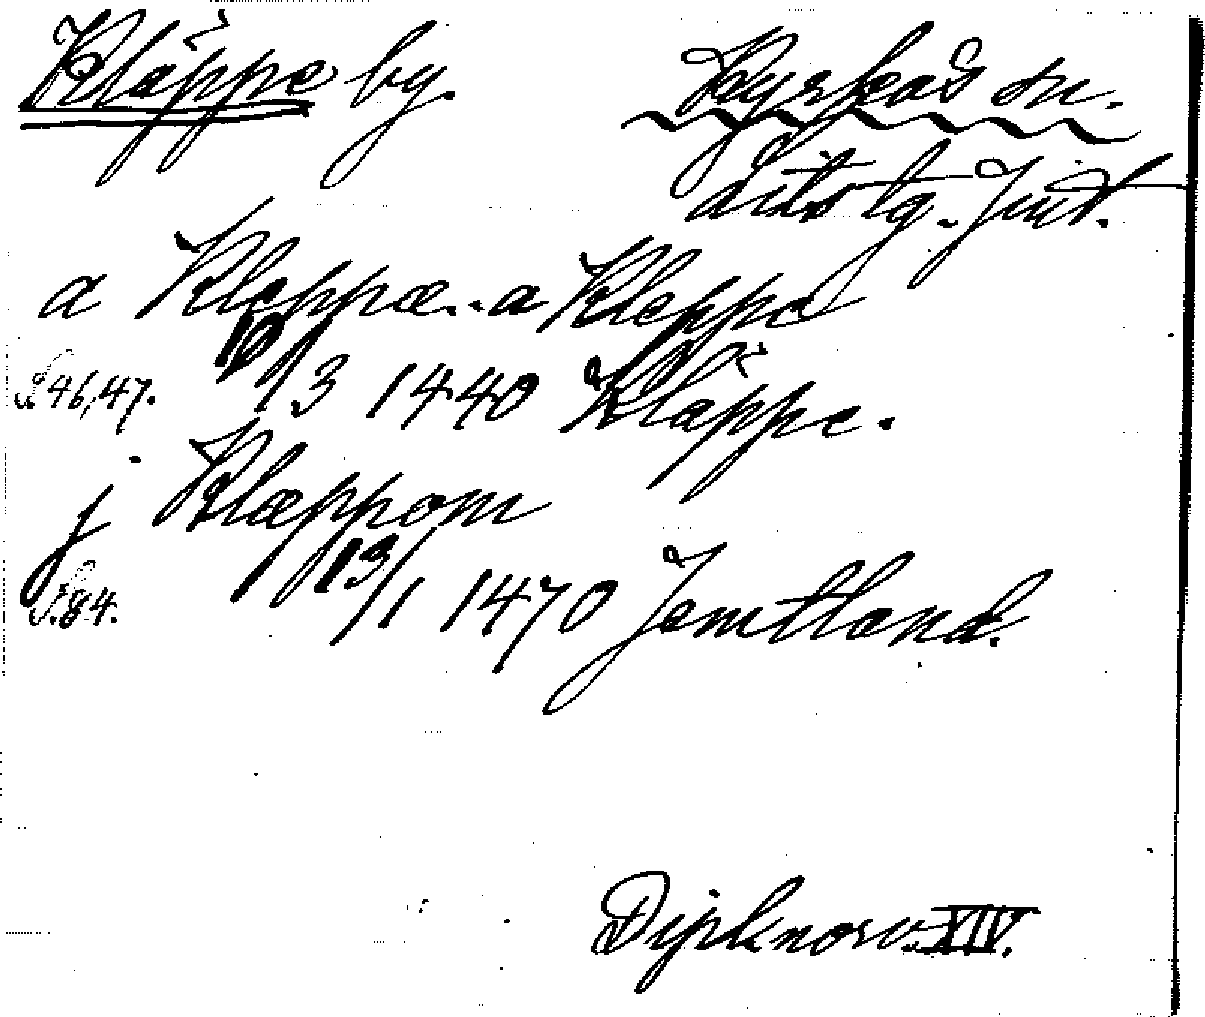 Kläppe by. Kyrkås sn.
dito tg. Jmt.
a Kleppæ. a Kleppe
S. 46, 47. 10/3 1440 Kläppe.
j Klæppom
S. 84. 13/1 1470 Jemtland.
Dipl. norv. XIV.